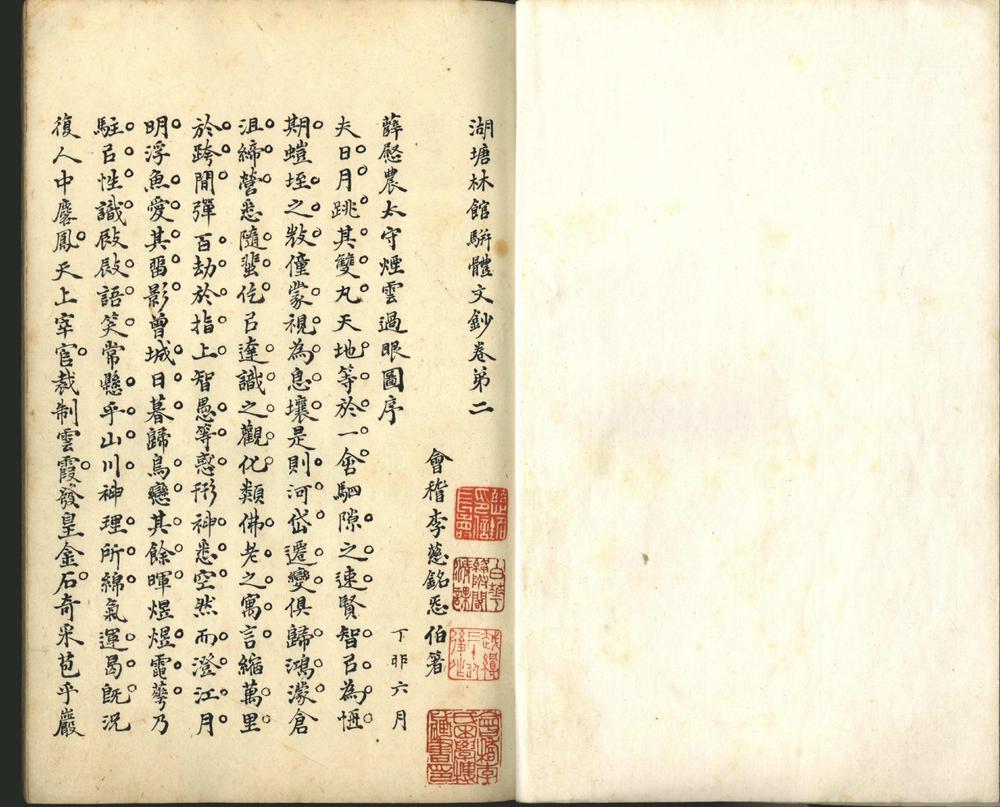 湖塘林館駢體文鈔卷第二
會稽李慈銘㤅伯箸
薛慰農太守煙雲過眼圖序
丁卯六月
夫日月跳其雙丸天地等於一舍駟隙之速賢智㠯為恆
期螘垤之㪚僮蒙視為息壤是則河岱遷變俱歸鴻濛倉
沮締營悉隨蜚仡㠯達識之觀化類佛老之寓言縮萬里
於跨間彈百劫於指上智愚等惑形神悉空然而澄江月
明浮魚愛其畱影曾城日暮歸鳥戀其餘暉煜煜電蕐乃
駐㠯性識㱿㱿語笑常懸乎山川神理所綿氣運曷旣況
復人中麐鳳天上宰官裁制雲霞發皇金石奇采苞乎巖